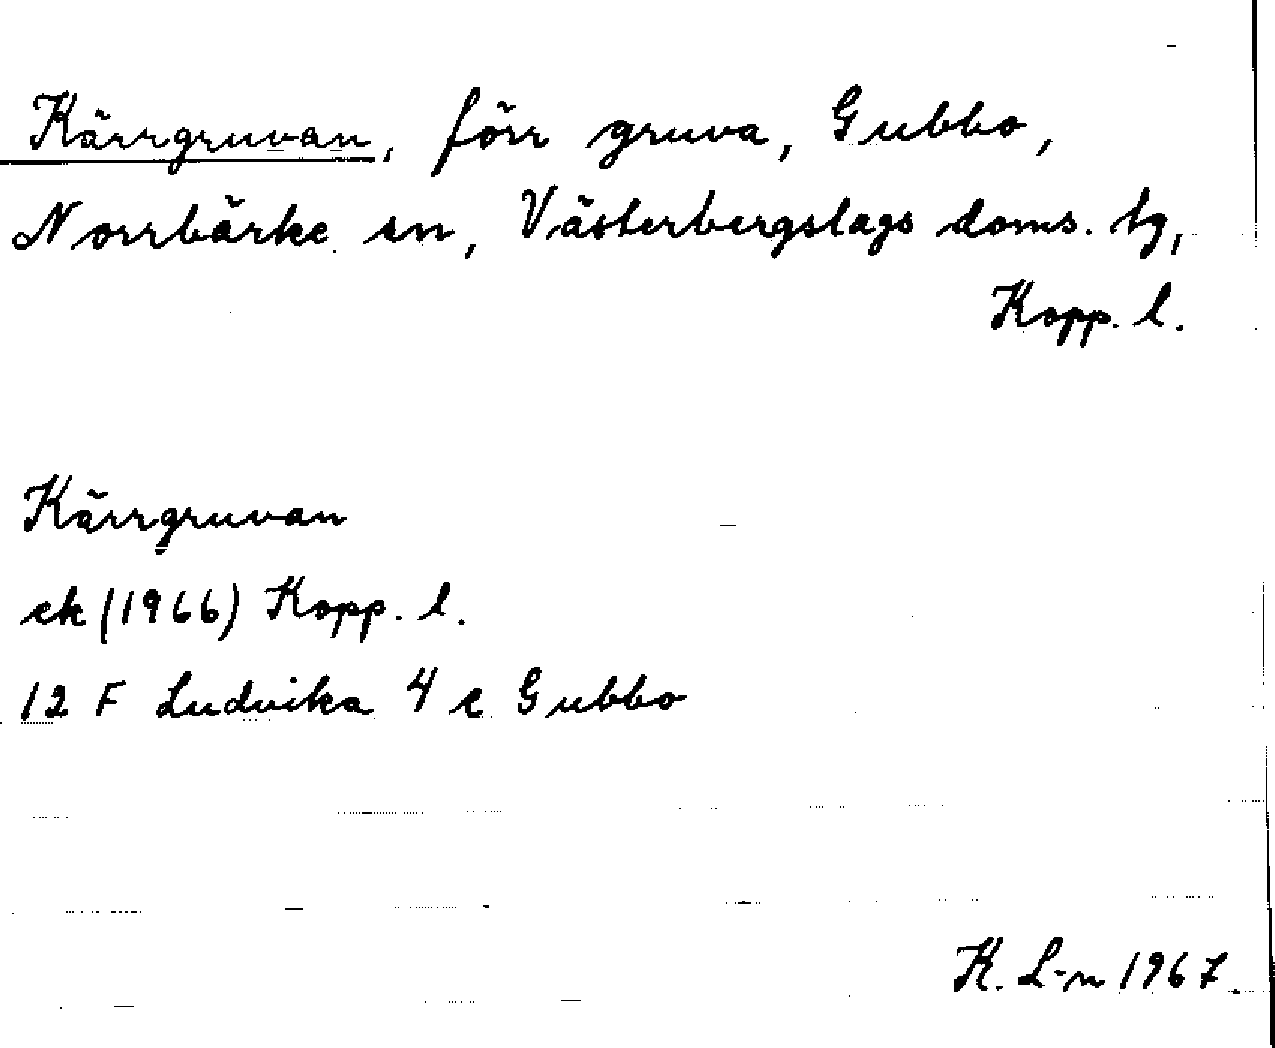 Kärrgruvan, förr gruva, Gubbo,
Norrbärke sn, Västerbergslags doms. tg,
Kopp. l.
Kärrgruvan
ek (1966) Kopp. l.
12 F Ludvika 4 e Gubbo
K. L-n 1967.